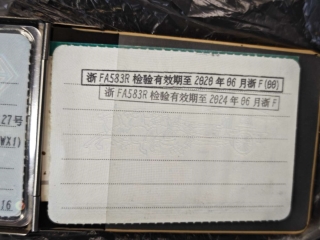 浙FAS83R检验有效期至2020年06月浙F(00)
浙FAS83R检验有效期至2024年06月浙F
27号
WX1)
16